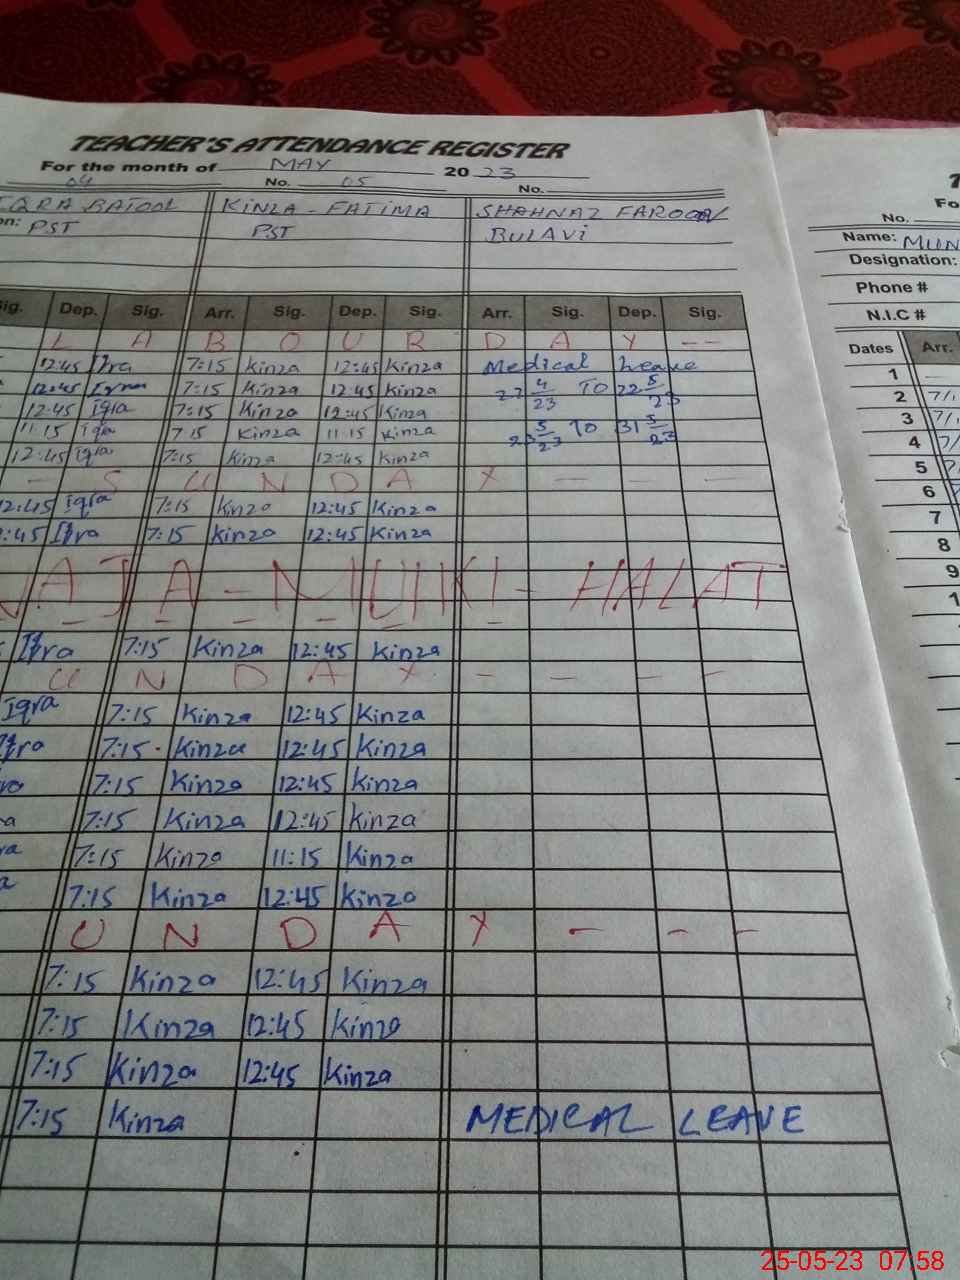 TEACHER'S ATTENDANCE REGISTER
For the month of MAY 2023
04 No. 05 No.
IQRA BATOOL KINZA - FATIMA SHAHNAZ FAROOQ
on: PST PST BULAVI
ig. Dep. Sig. Arr. Sig. Dep. Sig. Arr. Sig. Dep. Sig.
L A B O U R D A Y --
12:45 Iqra 7:15 Kinza 12:45 Kinza Medical Leave
12:45 Iqra 7:15 Kinza 12:45 Kinza 27 4/23 TO 22 5/23
12:45 Iqra 7:15 Kinza 12:45 Kinza
11:15 Iqra 7:15 Kinza 11:15 Kinza 23 5/23 TO 31 5/23
12:45 Iqra 7:15 Kinza 12:45 Kinza
- S U N D A Y - - -
12:45 Iqra 7:15 Kinza 12:45 Kinza
:45 Iqra 7:15 Kinza 12:45 Kinza
WAJA - MULKI - HALAT
Iqra 7:15 Kinza 12:45 Kinza
U N D A Y - - - -
Iqra 7:15 Kinza 12:45 Kinza
Iqra 7:15 Kinza 12:45 Kinza
ra 7:15 Kinza 12:45 Kinza
a 7:15 Kinza 12:45 Kinza
ra 7:15 Kinza 11:15 Kinza
a 7:15 Kinza 12:45 Kinza
U N D A Y - - -
7:15 Kinza 12:45 Kinza
7:15 Kinza 12:45 Kinza
7:15 Kinza 12:45 Kinza
7:15 Kinza MEDICAL LEAVE
T
Fo
No.
Name: MUN
Designation:
Phone #
N.I.C #
Dates Arr.
1 -
2 7/1
3 7/1
4 7/
5 7/
6 7
7
8
9
1
25-05-23 07:58